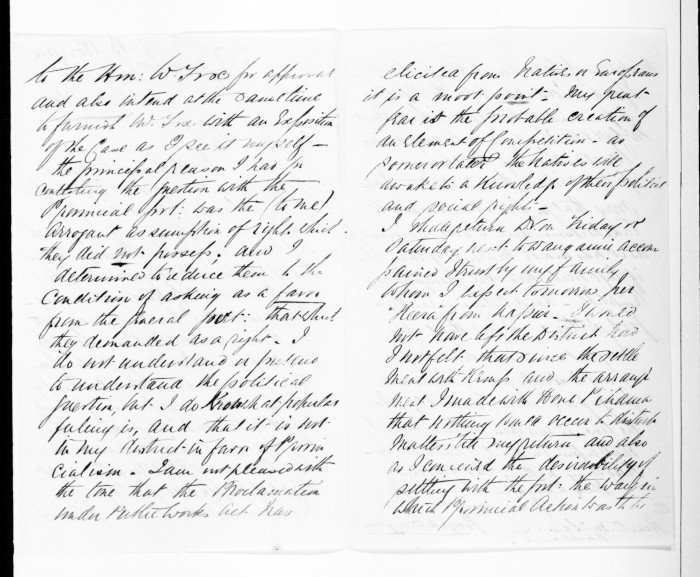 to the Hon: W Fox for approval
and also intend at the same time
to furnish Mr Fox with an Exposition
of the Case as I see it myself —
the principal reason I had in
contesting the question with the
Provincial Govt: was the (to me)
arrogant assumption of rights which
they did not possess, and I
determined to reduce them to the
Condition of asking as a favor
from the General Govt: that which
they demanded as a right. I
do not understand or pretend
to understand the political
question, but I do know what popular
feeling is, and that it is not
in my district in favor of Provin
cialism. I am not pleased with
the tone that the Proclamation
under Public Works Act has
elicited from Natives or Europeans
it is a moot point. My great
fear is the probable creation of
an Element of Competition. as
sooner or later the Natives will
awake to a Knowledge of their political
and social rights —
I shall return D.V. on Friday or
Saturday next to Wanganui accom
panied I trust by my family
whom I expect tomorrow per
from Napier. I should
not have left the District had
I not felt that since the settle
ment with Kemp and the arrange
ment I made with Hone Pihama
that nothing would occur to disturb
matters till my return and also
as I conceived the desirability of
settling with the Govt: the way in
which Provincial Action was to be